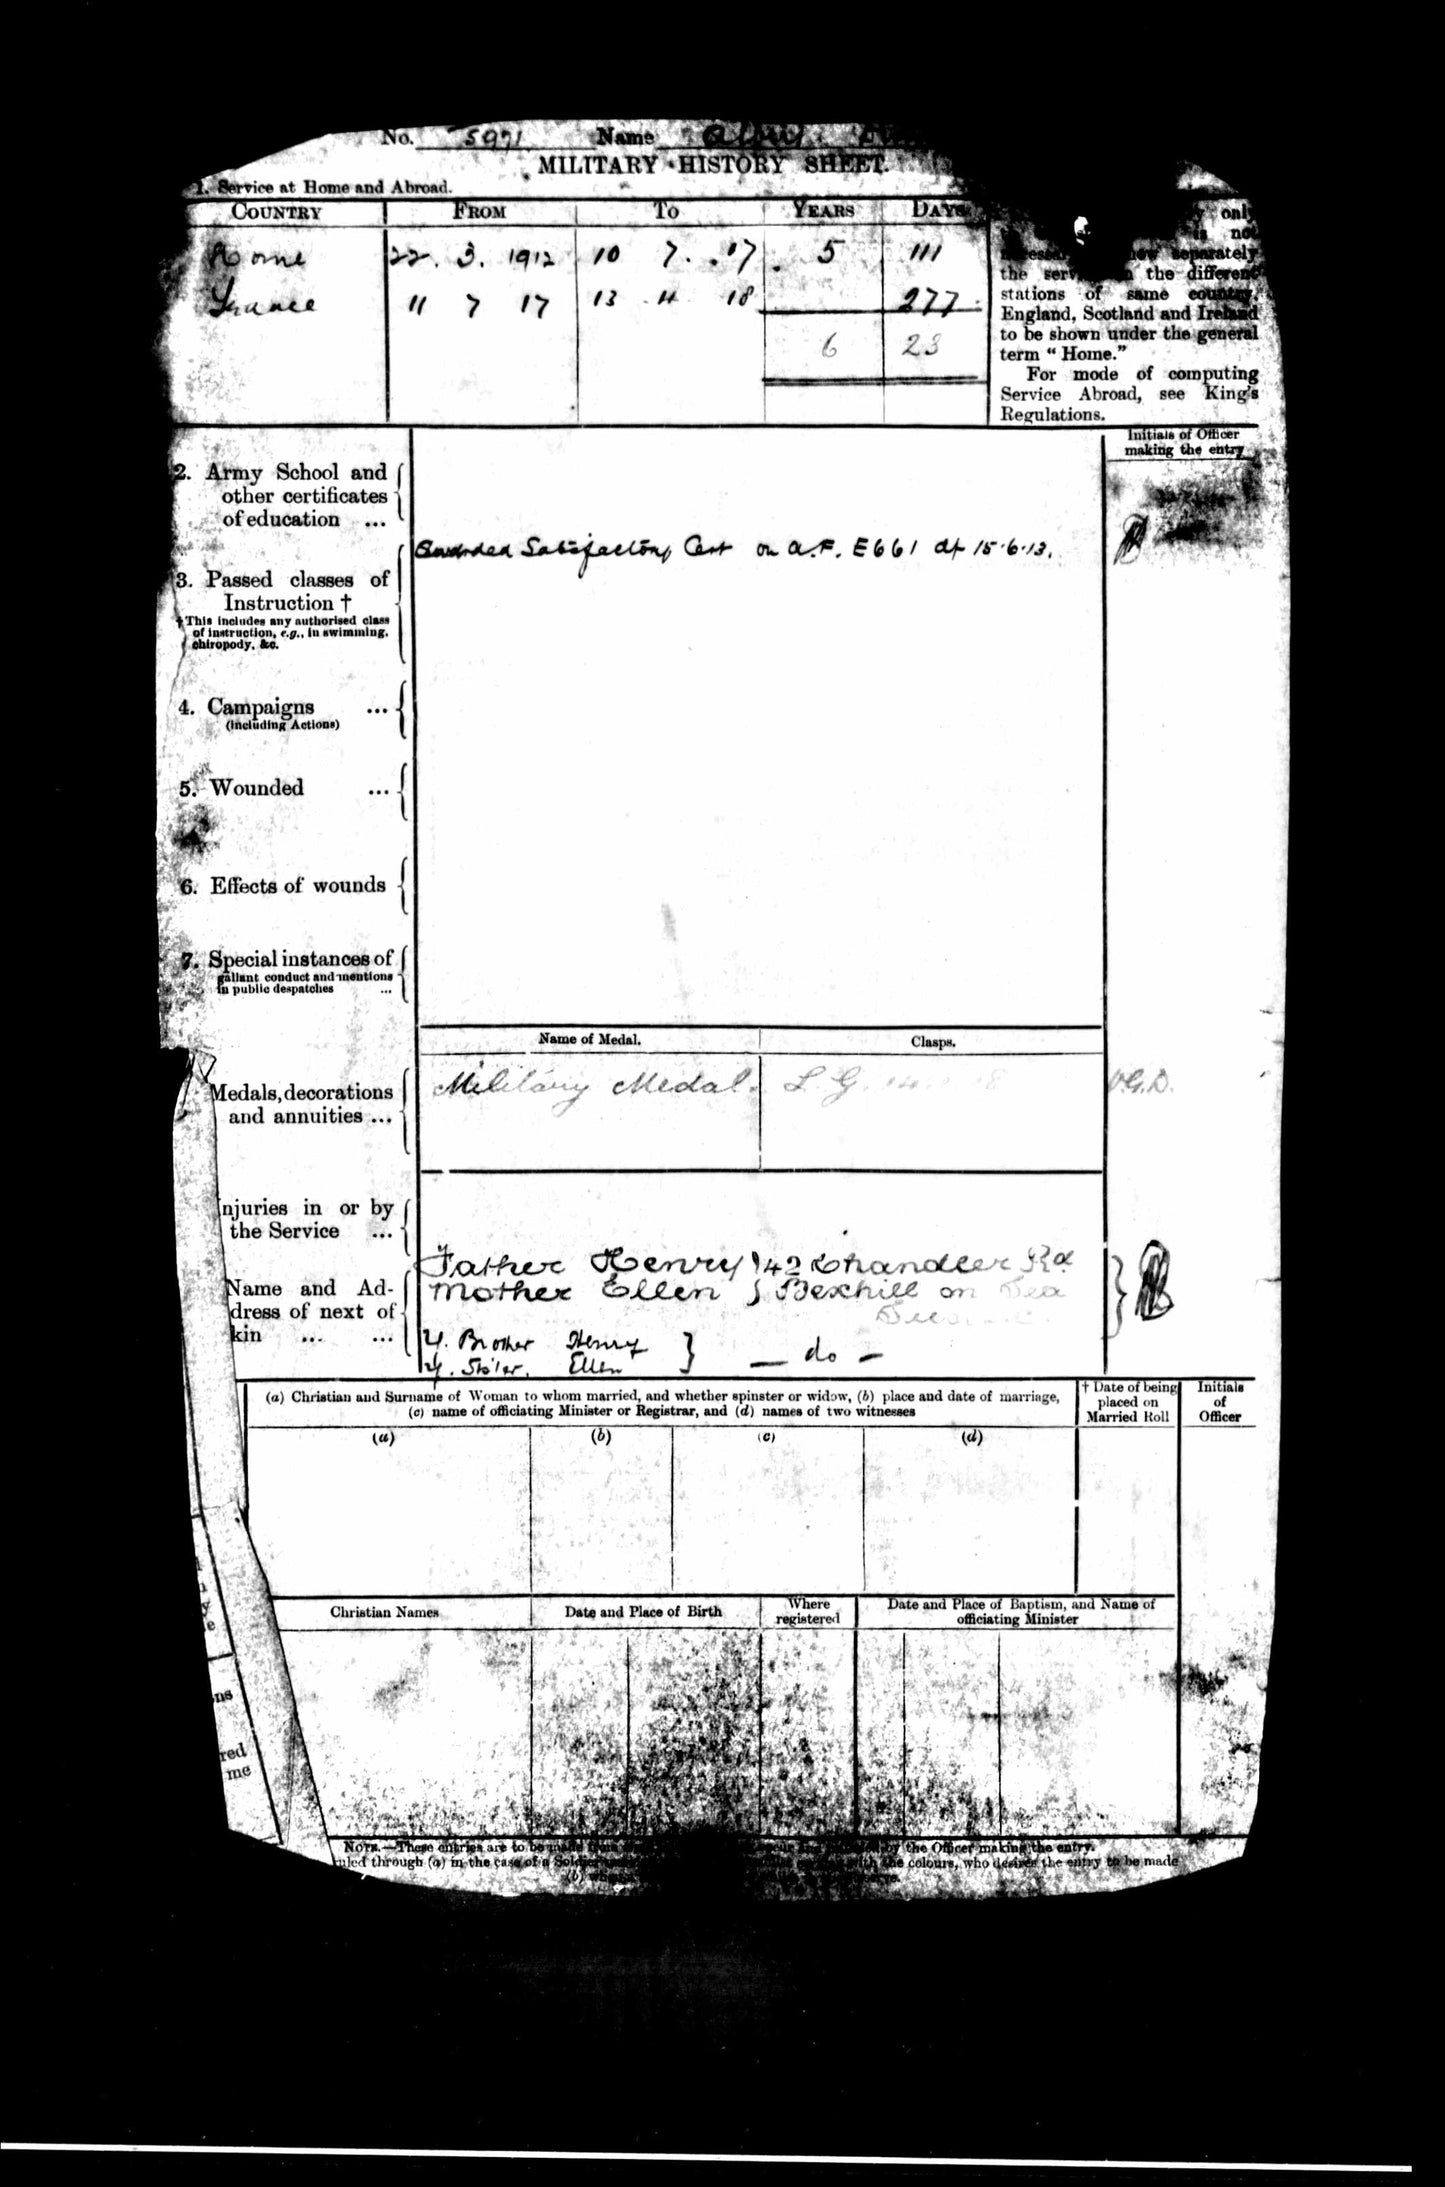 No. 5971 Name
MILITARY HISTORY SHEET.
1. Service at Home and Abroad.
COUNTRY FROM TO YEARS DAYS
Home 22. 3. 1912 10 7. 17 5 111
France 11 7 17 13 4 18 277
6 23
only
is not
separately
the the different
stations of same country.
England, Scotland and Ireland
to be shown under the general
term "Home."
For mode of computing
Service Abroad, see King's
Regulations.
Initials of Officer
making the entry
2. Army School and
other certificates
of education ...
Awarded Satisfactory Cert on A.F. E661 dt 15.6.13.
3. Passed classes of
Instruction †
† This includes any authorised class
of instruction, e.g., in swimming,
chiropody, &c.
4. Campaigns ...
(including Actions)
5. Wounded ...
6. Effects of wounds
7. Special instances of
gallant conduct and mentions
in public despatches ...
Name of Medal. Clasps.
Medals, decorations
and annuities ...
Military Medal. L. G.
njuries in or by
the Service ...
Name and Ad-
dress of next of
kin ... ...
Father Henry } 42 Chandler Rd
Mother Ellen } Bexhill on Sea
Y. Brother Henry }
Y. Sister. Ellen } — do —
(a) Christian and Surname of Woman to whom married, and whether spinster or widow, (b) place and date of marriage,
(c) name of officiating Minister or Registrar, and (d) names of two witnesses
† Date of being
placed on
Married Roll
Initials
of
Officer
(a) (b) (c) (d)
Christian Names Date and Place of Birth Where
registered Date and Place of Baptism, and Name of
officiating Minister
ns
red
me
NOTE.—These entries are to be made by the Officer making the entry.
ruled through (a) in the case of a the colours, who desires the entry to be made
(b)